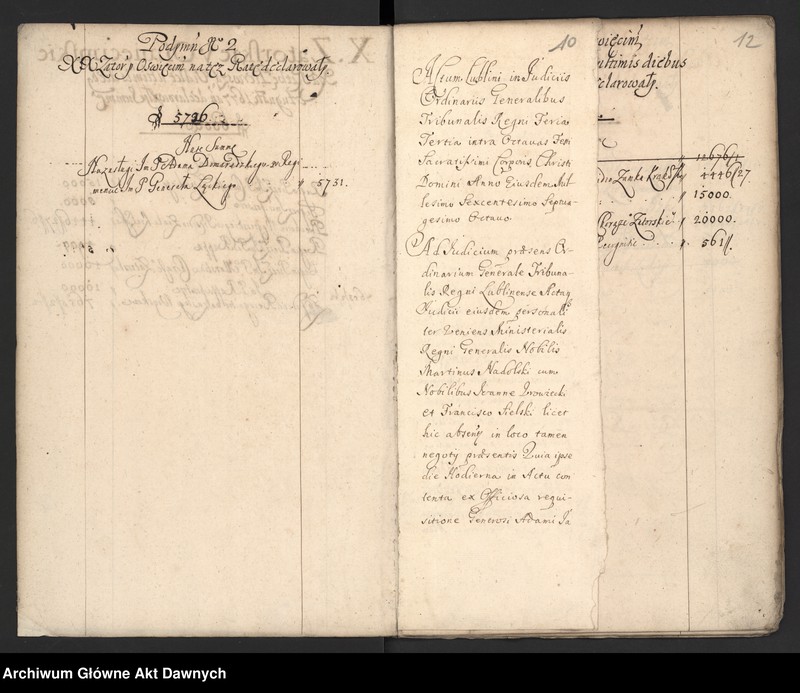 Podymn No 2
XX Zator y Oswięcim na tęż Ratę declarowały.
fl 5726
Na zasługi Im P
5731.
10
Actum Lublini in Judiciis
Ordinariis Generalibus
Tribunalis Regni Feria
Tertia intra Octavas Festi
Sacratissimi Corporis Christi
Domini Anno Eiusdem Mil
lesimo Sexcentesimo Septua-
gesimo Octavo
Ad Judicium præsens Or-
dinarium Generale Tribuna-
lis Regni Lublinense Actaq
Judicii eiusdem personali
ter veniens Ministerialis
Regni Generalis Nobilis
Martinus Nadolski cum
Nobilibus Joanne
et Francisco Sielski licet
hic absenti in loco tamen
negotij præsentis Quia ipse
die Hodierna in Actu con
tenta ex Officiosa requi-
sitione Generosi Adami Ja
12
więcim
ultimis diebus
clarowały.
12676/1
1446/27
15000.
20000.
561/.
Archiwum Główne Akt Dawnych